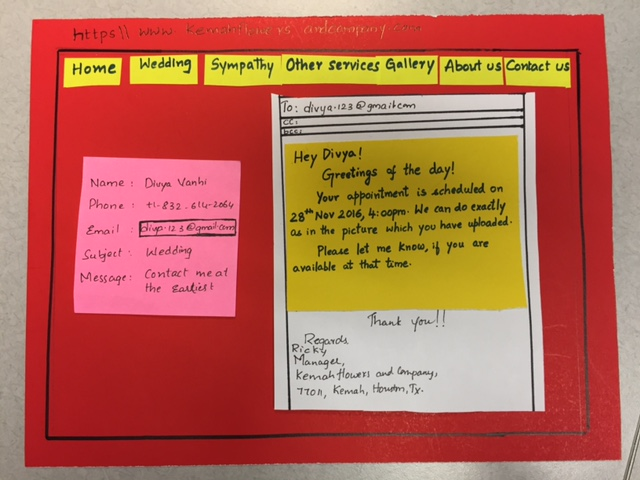 https|| www kemahflowers andcompany.com
Home Wedding Sympathy Other services Gallery About us Contact us
Name : Divya Vanhi
Phone : +1-832-614-2064
Email : divp.123@gmail.com
Subject : Wedding
Message: Contact me at
the Earliest
To: divya.123@gmail.com
cc:
bcc:
Hey Divya!
Greetings of the day!
Your appointment is scheduled on
28th Nov 2016, 4:00pm. We can do exactly
as in the picture which you have uploaded.
Please let me know, if you are
available at that time.
Thank you!!
Regards
Ricky,
Manager,
Kemah flowers and Company,
77011, Kemah, Houston, Tx.